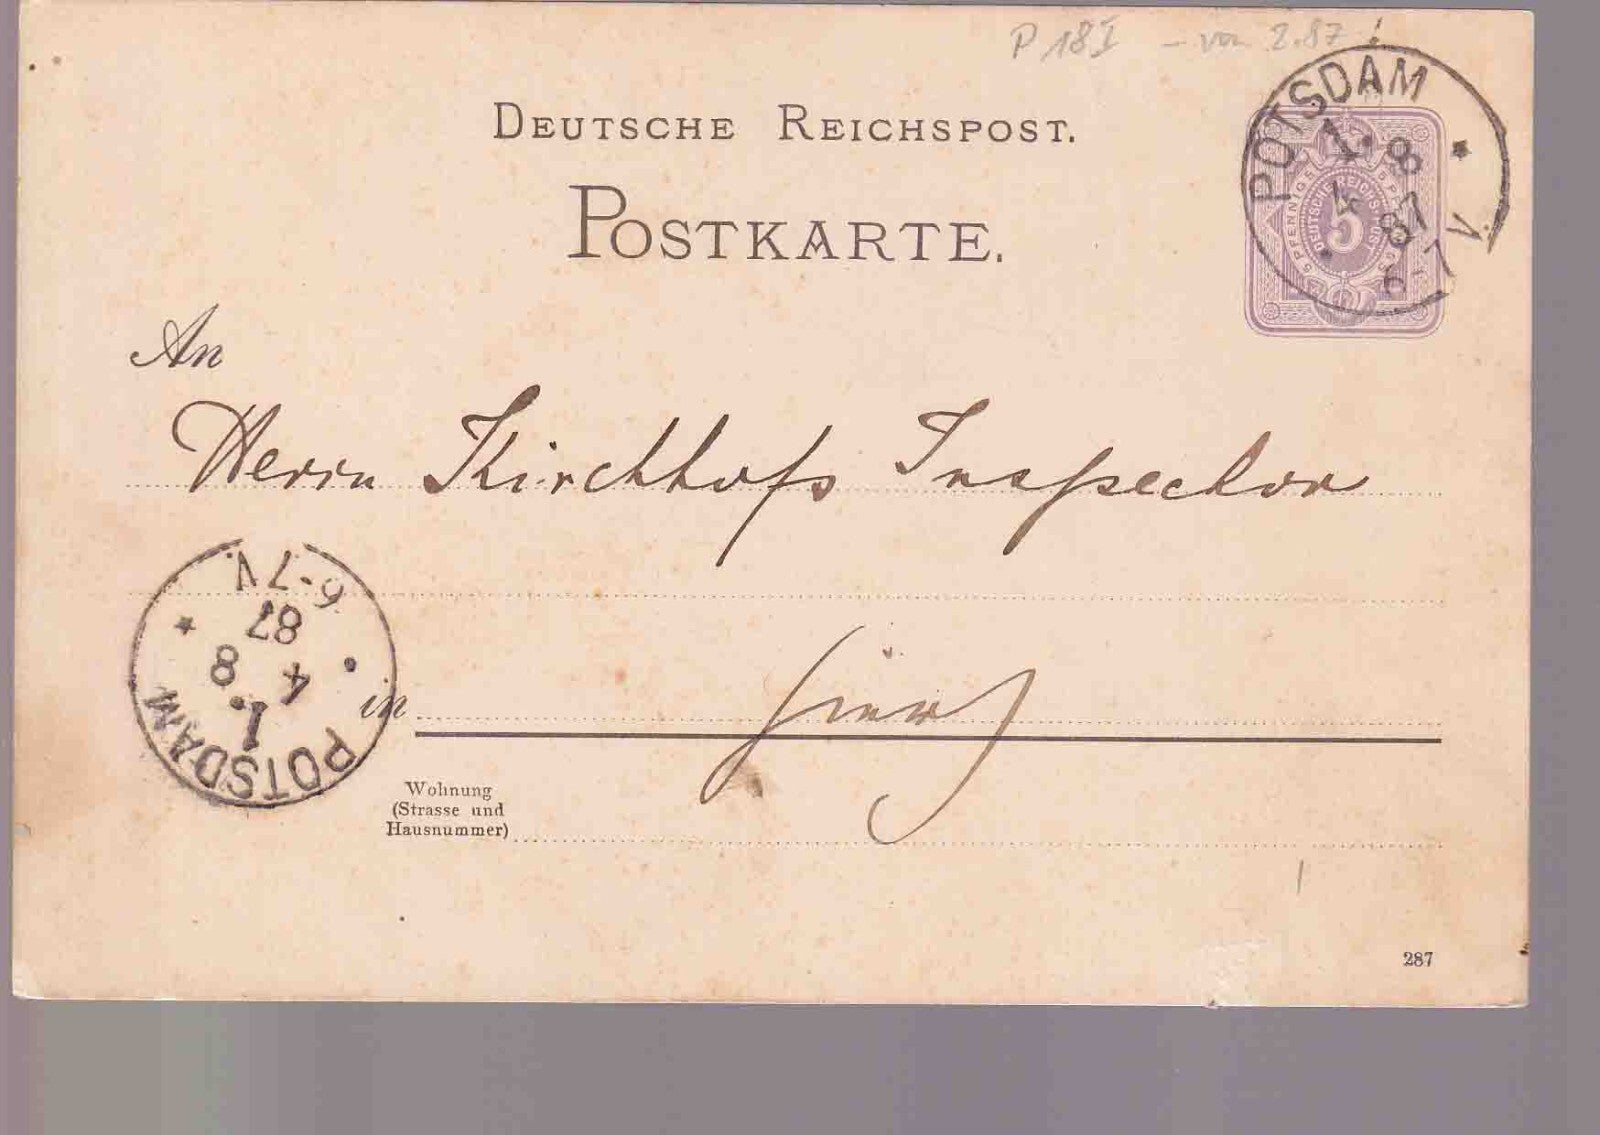 P 18 I – von 2.87
DEUTSCHE REICHSPOST.
POSTKARTE.
POTSDAM
1. 8
4 87
6-7
5 PFENNIG
DEUTSCHE REICHSPOST
5
An
Herrn Kirchhofs Inspector
in
Wohnung
(Strasse und
Hausnummer)
POTSDAM
1.
4 8
87
6-7 V.
287